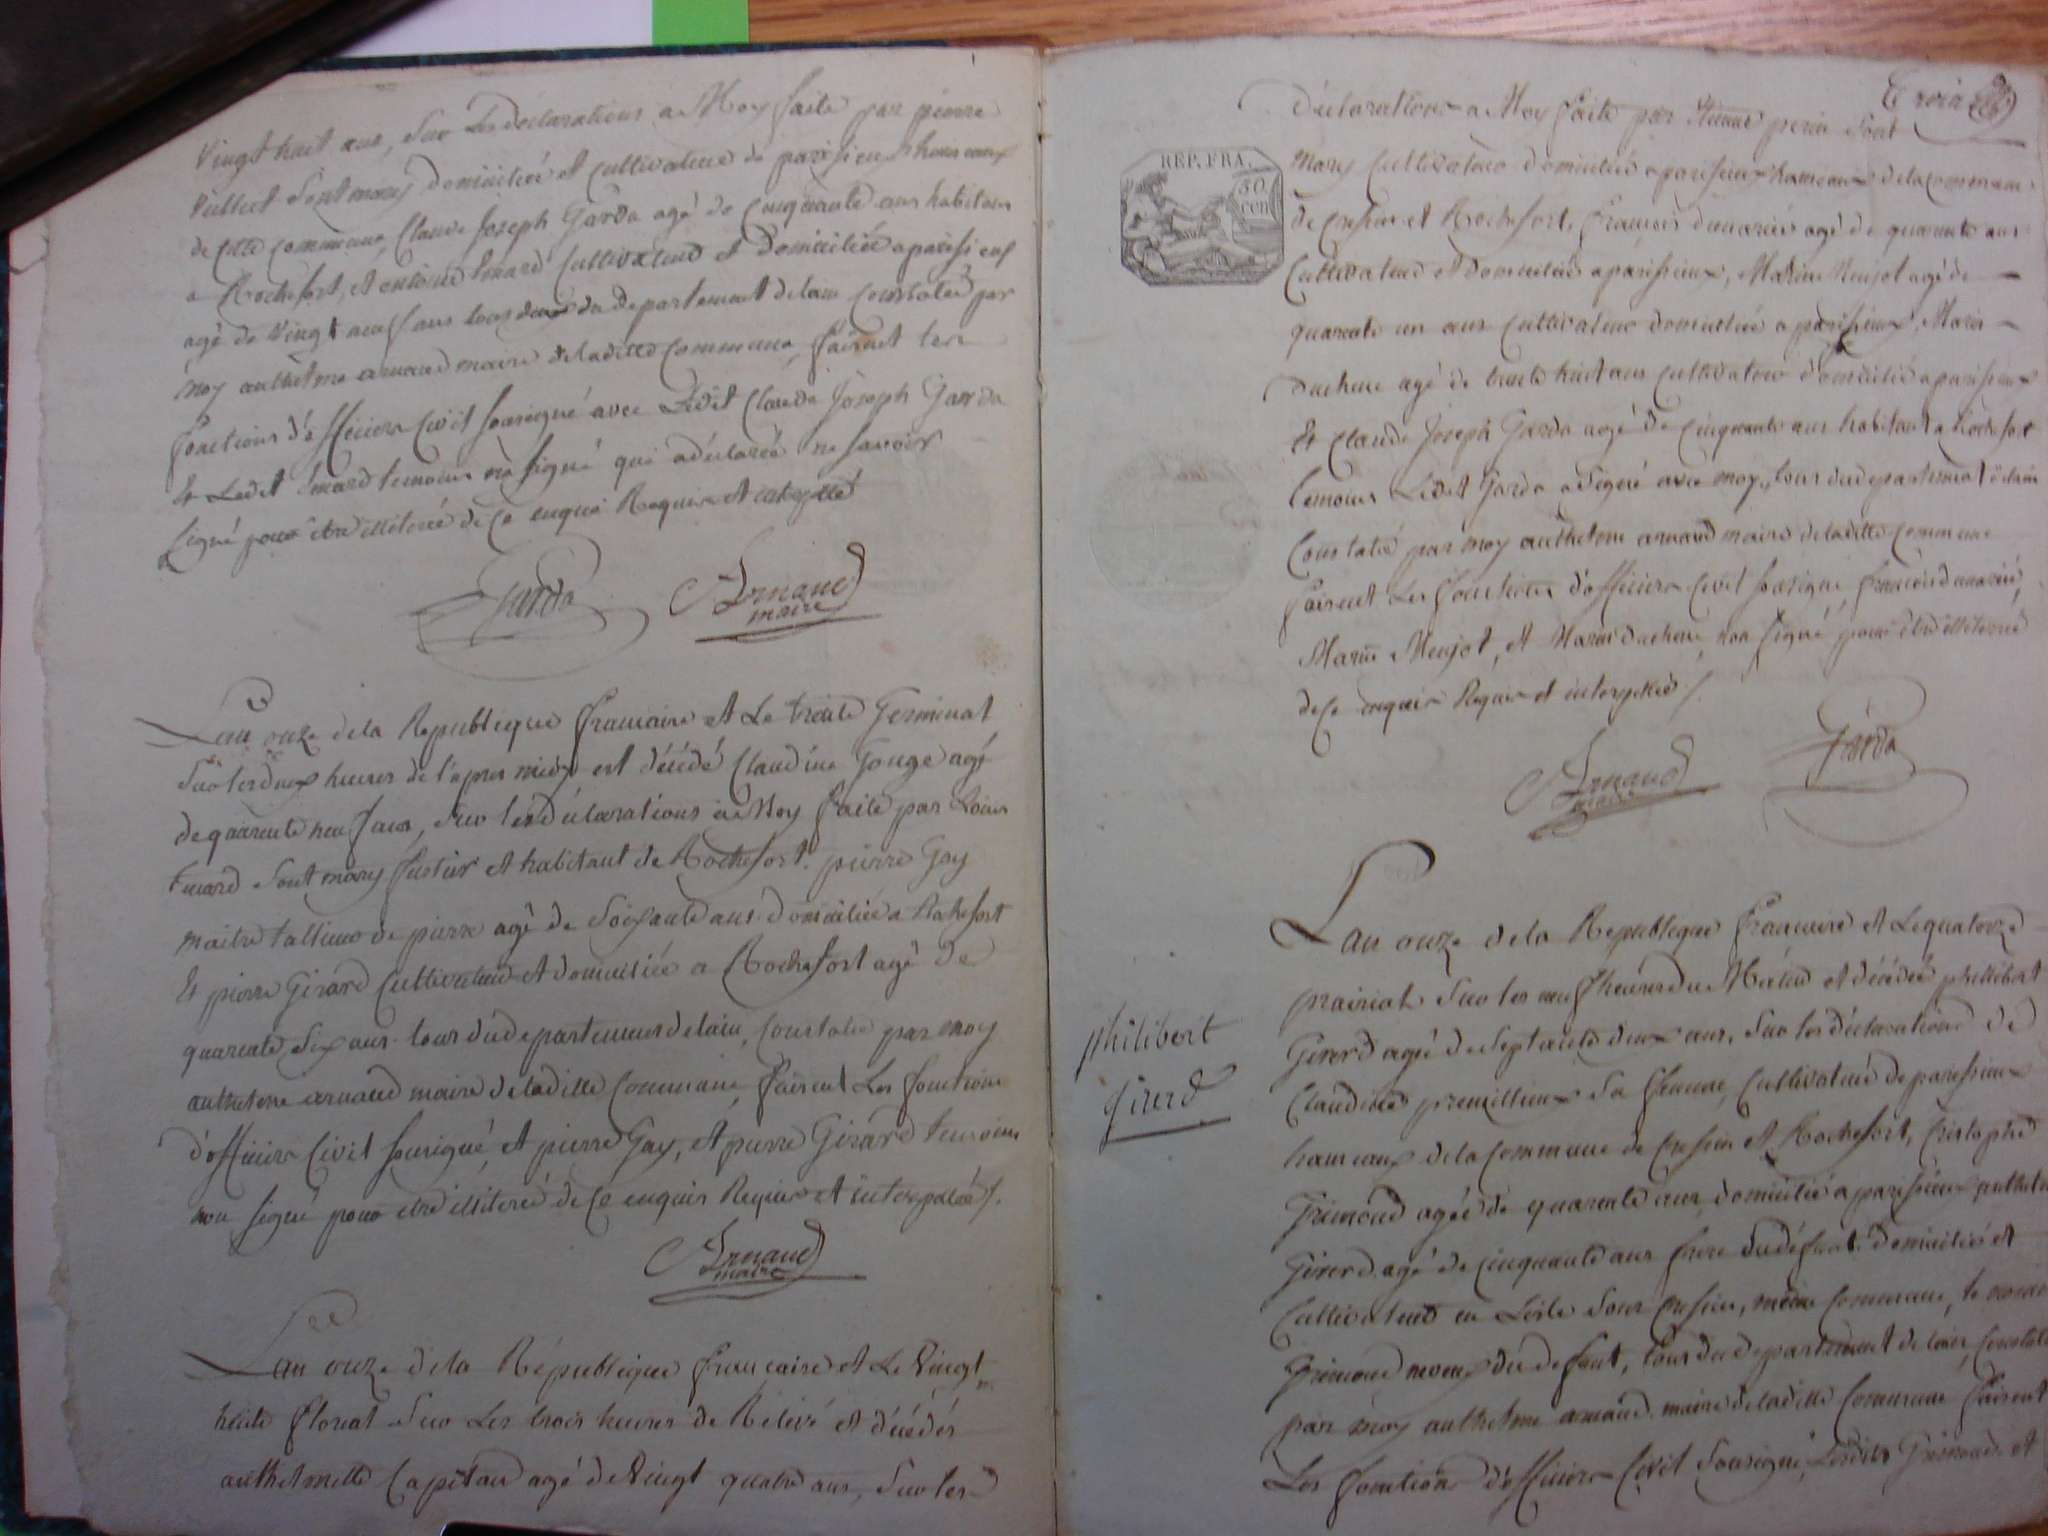 Vingt huit ans, Sur Les déclarations a Moy faite par pierre
Vulliet Sont mary domicilié et cultivateur de parissieux hameaux
de cette commune, Claude Joseph Garda agé de cinquante ans habitans
a Rochefort, et antoine Emard cultivateur et domicilié a parissieux
agé de vingt neuf ans tous deux du departement delain constatée par
moy anthelme arnaud maire de laditte commune, fairent les
fonctions d'officiers civil sousigné avec Ledit Claude Joseph Garda
Et Ledit Emard temoins no signé qui a déclarée ne savoir
Signé pour être illiterée de ce enquis Requis et interpellé
Garda Arnaud
maire
L'an onze de la Republique francaise et Le trente Germinal
Sur les deux heures de l'apres midy est décédé Claudine Gouge agé
de quarente neuf ans, Sur les déclarations a Moy faite par Louis
Emard Sont mary fustier et habitant de Rochefort. pierre Gay
maitre tallieur de pierre agé de Soixante ans domicilié a Rochefort
Et pierre Girard cultivateur et domicilié a Rochefort agé de
quarente Six ans tous du departement delain, constatée par moy
anthelme arnaud maire de laditte commune, fairent Les fonctions
d'officiers civil sousigné, et pierre Gay, et pierre Girard temoins
non signé pour etre illiterée de ce enquis Requis et interpellée
Arnaud
maire
L'an onze de la République francaise et Le Vingt
huite floreal Sur Les trois heures de Relevé et décédés
anthelmette Capitan agé de Vingt quatre ans, Sur les
Trois
déclarations a Moy faite par Etienne perin Sont
REP. FRA.
50
cen
mary cultivateur domicilié a parissieux hameaux de la commune
de Cressin et Rochefort, francois dunarié agé de quarente ans
cultivateur et domicilié a parissieux, Marin Meujot agé de
quarente un ans cultivateur domicilié a parissieux, Marin
duchene agé de trente huit ans cultivateur domicilié a parissieux
Et Claude Joseph Garda agé de cinquante ans habitant a Rochefort
temoins Ledit Garda a Signé avec moy, tous du departement delain
Constatée par moy anthelme arnaud maire de laditte commune
fairent Les fonctions d'officiers civil sousigné, francois dunarié,
Marin Meujot, et Marin duchene, non Signé pour etre illiterée
de ce enquis Requis et interpellée
Arnaud Garda
maire
L'an onze de la République francaise et Le quatorze
prairial Sur les neuf heures du Matin et décédé phillibert
philibert
Girerd
Girerd agé de Septante deux ans, Sur les déclarations de
Claudine premillieux Sa femme, cultivateur de parissieux
hameaux de la commune de Cressin et Rochefort, Cristophe
Grimond agée de quarente ans, domicilié a parissieux anthelme
Girerd agé de cinquante ans frere du défunt domicilié et
cultivateur en Lisle Sous Cressin, même commune,
Grimond neveux du defunt, tous du departement delain, constatée
par moy anthelme arnaud maire de laditte commune fairent
Les fonctions d'officiers civil Sousigné, Grimond et